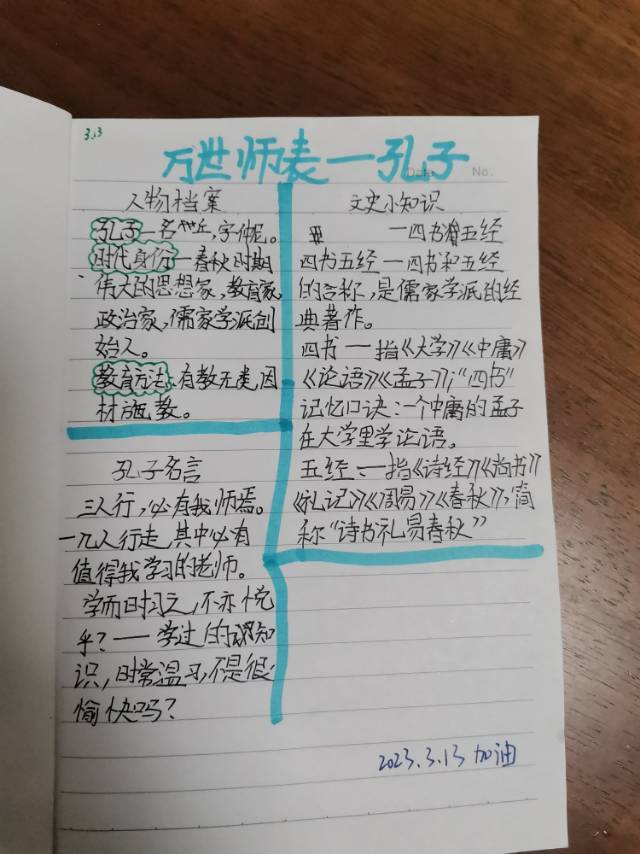 3.13
万世师表—孔子
Date
No.
人物档案
孔子—名丘,字仲尼。
时代身份—春秋时期
伟大的思想家,教育家,
政治家,儒家学派创
始人。
教育方法:有教无类,因
材施教。
孔子名言
三人行,必有我师焉。
—几人行走,其中必有
值得我学习的老师。
学而时习之,不亦悦
乎?——学过的知
识,时常温习,不是很
愉快吗?
文史小知识
—四书五经
四书五经—四书和五经
的合称,是儒家学派的经
典著作。
四书—指《大学》《中庸》
《论语》《孟子》;“四书”
记忆口诀:一个中庸的孟子
在大学里学论语。
五经:—指《诗经》《尚书》
《礼记》《周易》《春秋》,简
称“诗书礼易春秋”
2023.3.13 加油